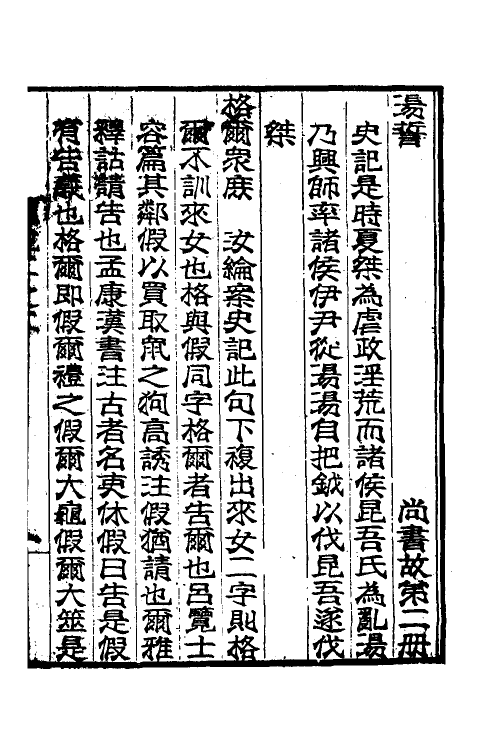 湯誓　尚書故第二冊
史記是時夏桀為虐政淫荒而諸侯昆吾氏為亂湯
乃興師率諸侯伊尹從湯湯自把鉞以伐昆吾遂伐
桀
格爾衆庶　汝綸案史記此句下複出來女二字則格
爾不訓來女也格與假同字格爾者告爾也呂覽士
容篇其鄰假以買取鼠之狗高誘注假猶請也爾雅
釋詁請告也孟康漢書注古者名吏休假曰告是假
有告義也格爾即假爾禮之假爾大龜假爾大筮是